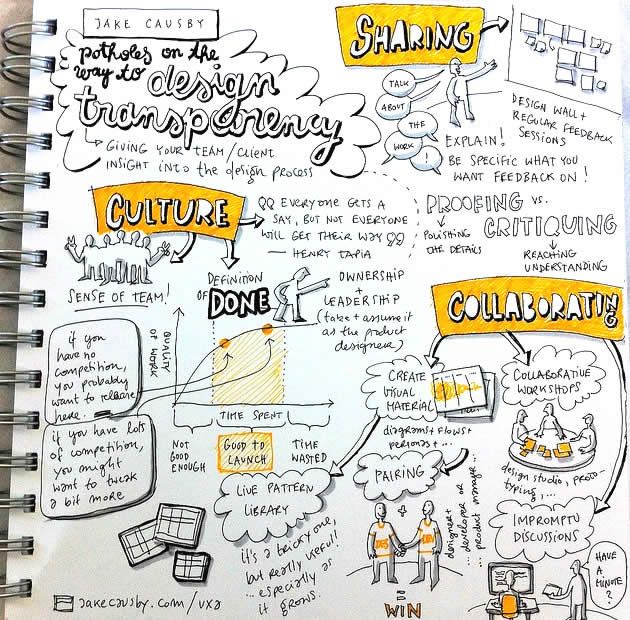 JAKE CAUSBY
potholes on the
way to design
transparency
GIVING YOUR TEAM/CLIENT
INSIGHT INTO the DESIGN PROCESS
SHARING
TALK
ABOUT
THE
WORK
!
EXPLAIN!
BE SPECIFIC WHAT YOU
WANT FEEDBACK ON!
DESIGN WALL +
REGULAR FEEDBACK
SESSIONS
PROOFING vs.
CRITIQUING
POLISHING
THE DETAILS
REACHING
UNDERSTANDING
CULTURE
EVERYONE GETS A
SAY, BUT NOT EVERYONE
WILL GET THEIR WAY
— HENRY TAPIA
SENSE OF TEAM!
DEFINITION
OF DONE
OWNERSHIP
+
LEADERSHIP
(take + assume it
as the product
designer)
if you
have no
competition,
you probably
want to release
here.
if you have lots
of competition,
you might
want to tweak
a bit more
QUALITY
OF WORK
TIME SPENT
NOT
GOOD
ENOUGH
GOOD TO
LAUNCH
TIME
WASTED
COLLABORATING
CREATE
VISUAL
MATERIAL
diagrams + flows +
personas + ...
COLLABORATIVE
WORKSHOPS
design studio, proto-
typing, ...
LIVE PATTERN
LIBRARY
it's a tricky one,
but really useful!
... especially as
it grows.
PAIRING
+
DES
DEV
= WIN
designer +
... developer or
... product manager...
IMPROMPTU
DISCUSSIONS
HAVE
A
MINUTE
?
jakecausby.com/uxa